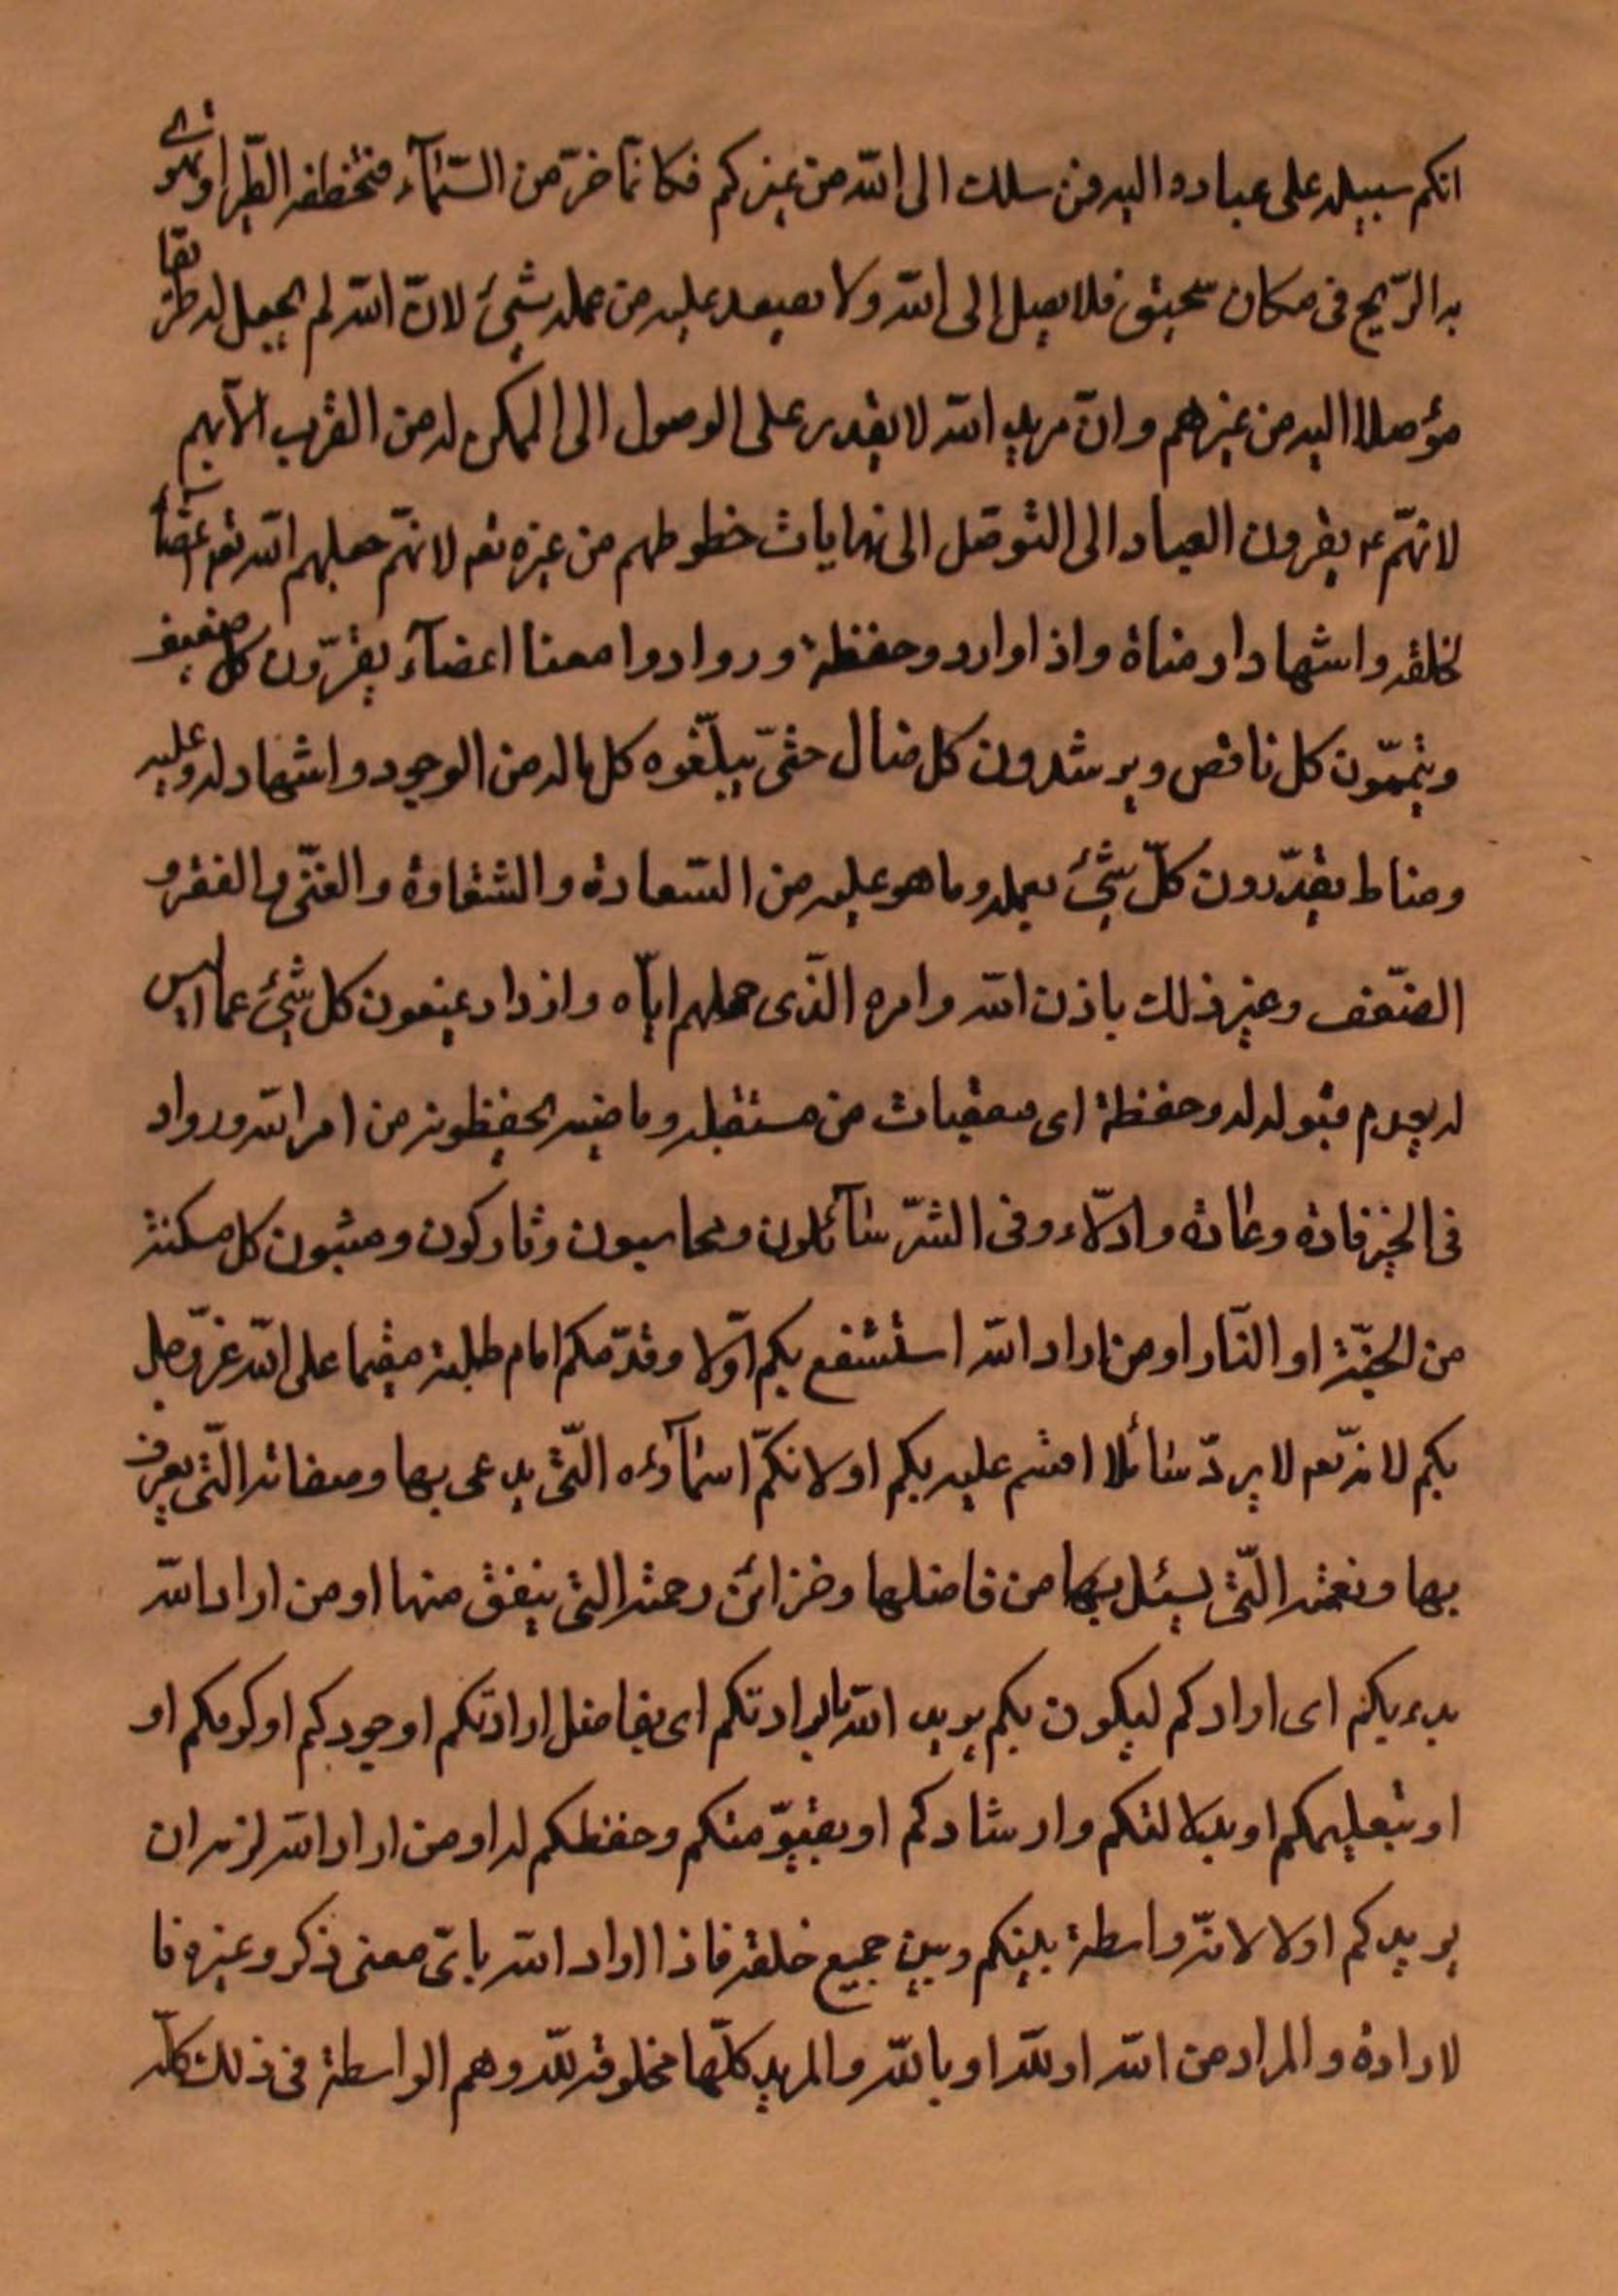 انكم سبيله على عباده واليه فمن سلك الى الله من غيركم فكانما خرّ من السّمآء فتخطفه الطّير او تهوى
به الرّيح فى مكان سحيق فلا يصل إلى الله ولا يصعد عليه من عمله شيئ لانّ الله لم يجعل له طريقا
مؤصلا اليه من غيرهم وانّ مريد الله لا يقدر على الوصول الى الممكن له من القرب الا بهم
لانهّم ع يقرون العباد الى التوصّل الى نهايات حظوظهم من غيره تعم لانهّم جعلهم الله تعم اعضآء
لخلقه واشهادا ومناة واذ اوارد وحفظة وروادوا معنا اعضآء يقرّون كل ضعيف
ويتممّون كل ناقص ويرشدون كل ضال حتىّ يبلّغوه كل ماله من الوجود واشهاد له وعليه
ومناط يقدّرون كلّ شيئ بعمله وما هو عليه من السّعادة والشقاوة والغنّى والفقر و
الضّعف وغير ذلك باذن الله وامره الّذى حملهم ايّاه واذداد يمنعون كل شيئ عما ليس
له بعدم قبوله له وحفظة اى معقبات من مستقبله وماضيه يحفظونه من امر الله ورواد
فى الخير قادة وعادة وادلّاء وفى الشرّ سآئلون ومحاسبون وتاركون ومثبون كل مسكنة
من الجنّة او النّار او من اراد الله استشفع بكم اوّلا وقدّمكم امام طلبته مقيما على الله عزّ وجل
بكم لانه تعم لا يردّ سائلا اقسم عليه بكم او لانكمّ اسمآؤه الّتى يدعى بها وصفاته الّتى يعرف
بها ونعمته الّتى يسئل بها من فاضلها وخزائن رحمته التى ينفق منها او من اراد الله
بدء بكم اى ارادكم ليكون بكم يريد الله بارادتكم اى بفاضل ارادتكم او جودكم او كرمكم او
او بتعليمكم او بدلالتكم وارشادكم او بقيوّمتكم وحفظكم له او من اراد الله لزمه ان
يريدكم اولا لانّه واسطة بينكم وبين جميع خلقه فاذا اراد الله باىّ معنى ذكر وغيره فا
لارادة والمراد من الله او للّه او باللّه والمريد كلّها مخلوقة للّه وهم الواسطة فى ذلك كلّه